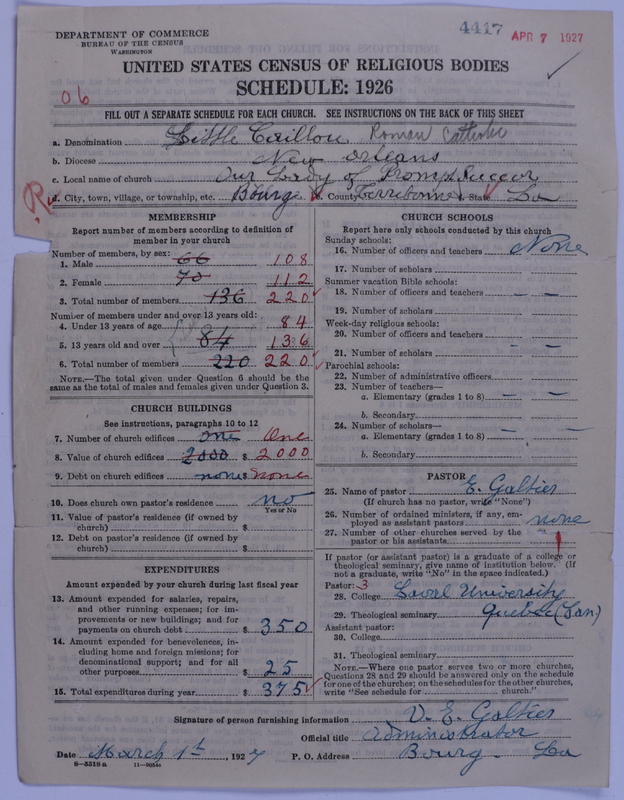 4417 APR 7 1927
DEPARTMENT OF COMMERCE
BUREAU OF THE CENSUS
WASHINGTON
UNITED STATES CENSUS OF RELIGIOUS BODIES
SCHEDULE: 1926
06
FILL OUT A SEPARATE SCHEDULE FOR EACH CHURCH. SEE INSTRUCTIONS ON THE BACK OF THIS SHEET
a. Denomination Little Caillou Roman Catholic
b. Diocese New Orleans
c. Local name of church Our Lady of Prompt Succor
d. City, town, village, or township, etc. Bourg e. County Terrebonne f. State La
MEMBERSHIP
Report number of members according to definition of
member in your church
Number of members, by sex:
1. Male 66 108
2. Female 70 112
3. Total number of members 136 220
Number of members under and over 13 years old:
4. Under 13 years of age 84
5. 13 years old and over 84 136
6. Total number of members 220 220
NOTE.—The total given under Question 6 should be
the same as the total of males and females given under Question 3.
CHURCH BUILDINGS
See instructions, paragraphs 10 to 12
7. Number of church edifices one One
8. Value of church edifices 2000 $ 2000
9. Debt on church edifices none $ none
10. Does church own pastor's residence no
Yes or No
11. Value of pastor's residence (if owned by
church) $
12. Debt on pastor's residence (if owned by
church) $
EXPENDITURES
Amount expended by your church during last fiscal year
13. Amount expended for salaries, repairs,
and other running expenses; for im-
provements or new buildings; and for
payments on church debt $ 350
14. Amount expended for benevolences, in-
cluding home and foreign missions; for
denominational support; and for all
other purposes $ 25
15. Total expenditures during year $ 375
CHURCH SCHOOLS
Report here only schools conducted by this church
Sunday schools:
16. Number of officers and teachers None
17. Number of scholars
Summer vacation Bible schools:
18. Number of officers and teachers — —
19. Number of scholars
Week-day religious schools:
20. Number of officers and teachers — —
21. Number of scholars
Parochial schools:
22. Number of administrative officers
23. Number of teachers—
a. Elementary (grades 1 to 8) — —
b. Secondary
24. Number of scholars—
a. Elementary (grades 1 to 8) — —
b. Secondary
PASTOR
25. Name of pastor E. Galtier
(If church has no pastor, write "None")
26. Number of ordained ministers, if any, em-
ployed as assistant pastors none
27. Number of other churches served by the
pastor or his assistants 1
If pastor (or assistant pastor) is a graduate of a college or
theological seminary, give name of institution below. (If
not a graduate, write "No" in the space indicated.)
Pastor: 3
28. College Laval University
29. Theological seminary Quebec (Can)
Assistant pastor:
30. College
31. Theological seminary
NOTE.—Where one pastor serves two or more churches,
Questions 28 and 29 should be answered only on the schedule
for one of the churches; on the schedules for the other churches,
write "See schedule for church."
Signature of person furnishing information V. E. Galtier
Official title Administrator
Date March 1st, 1927 P. O. Address Bourg - La
8-5518a 11-90546